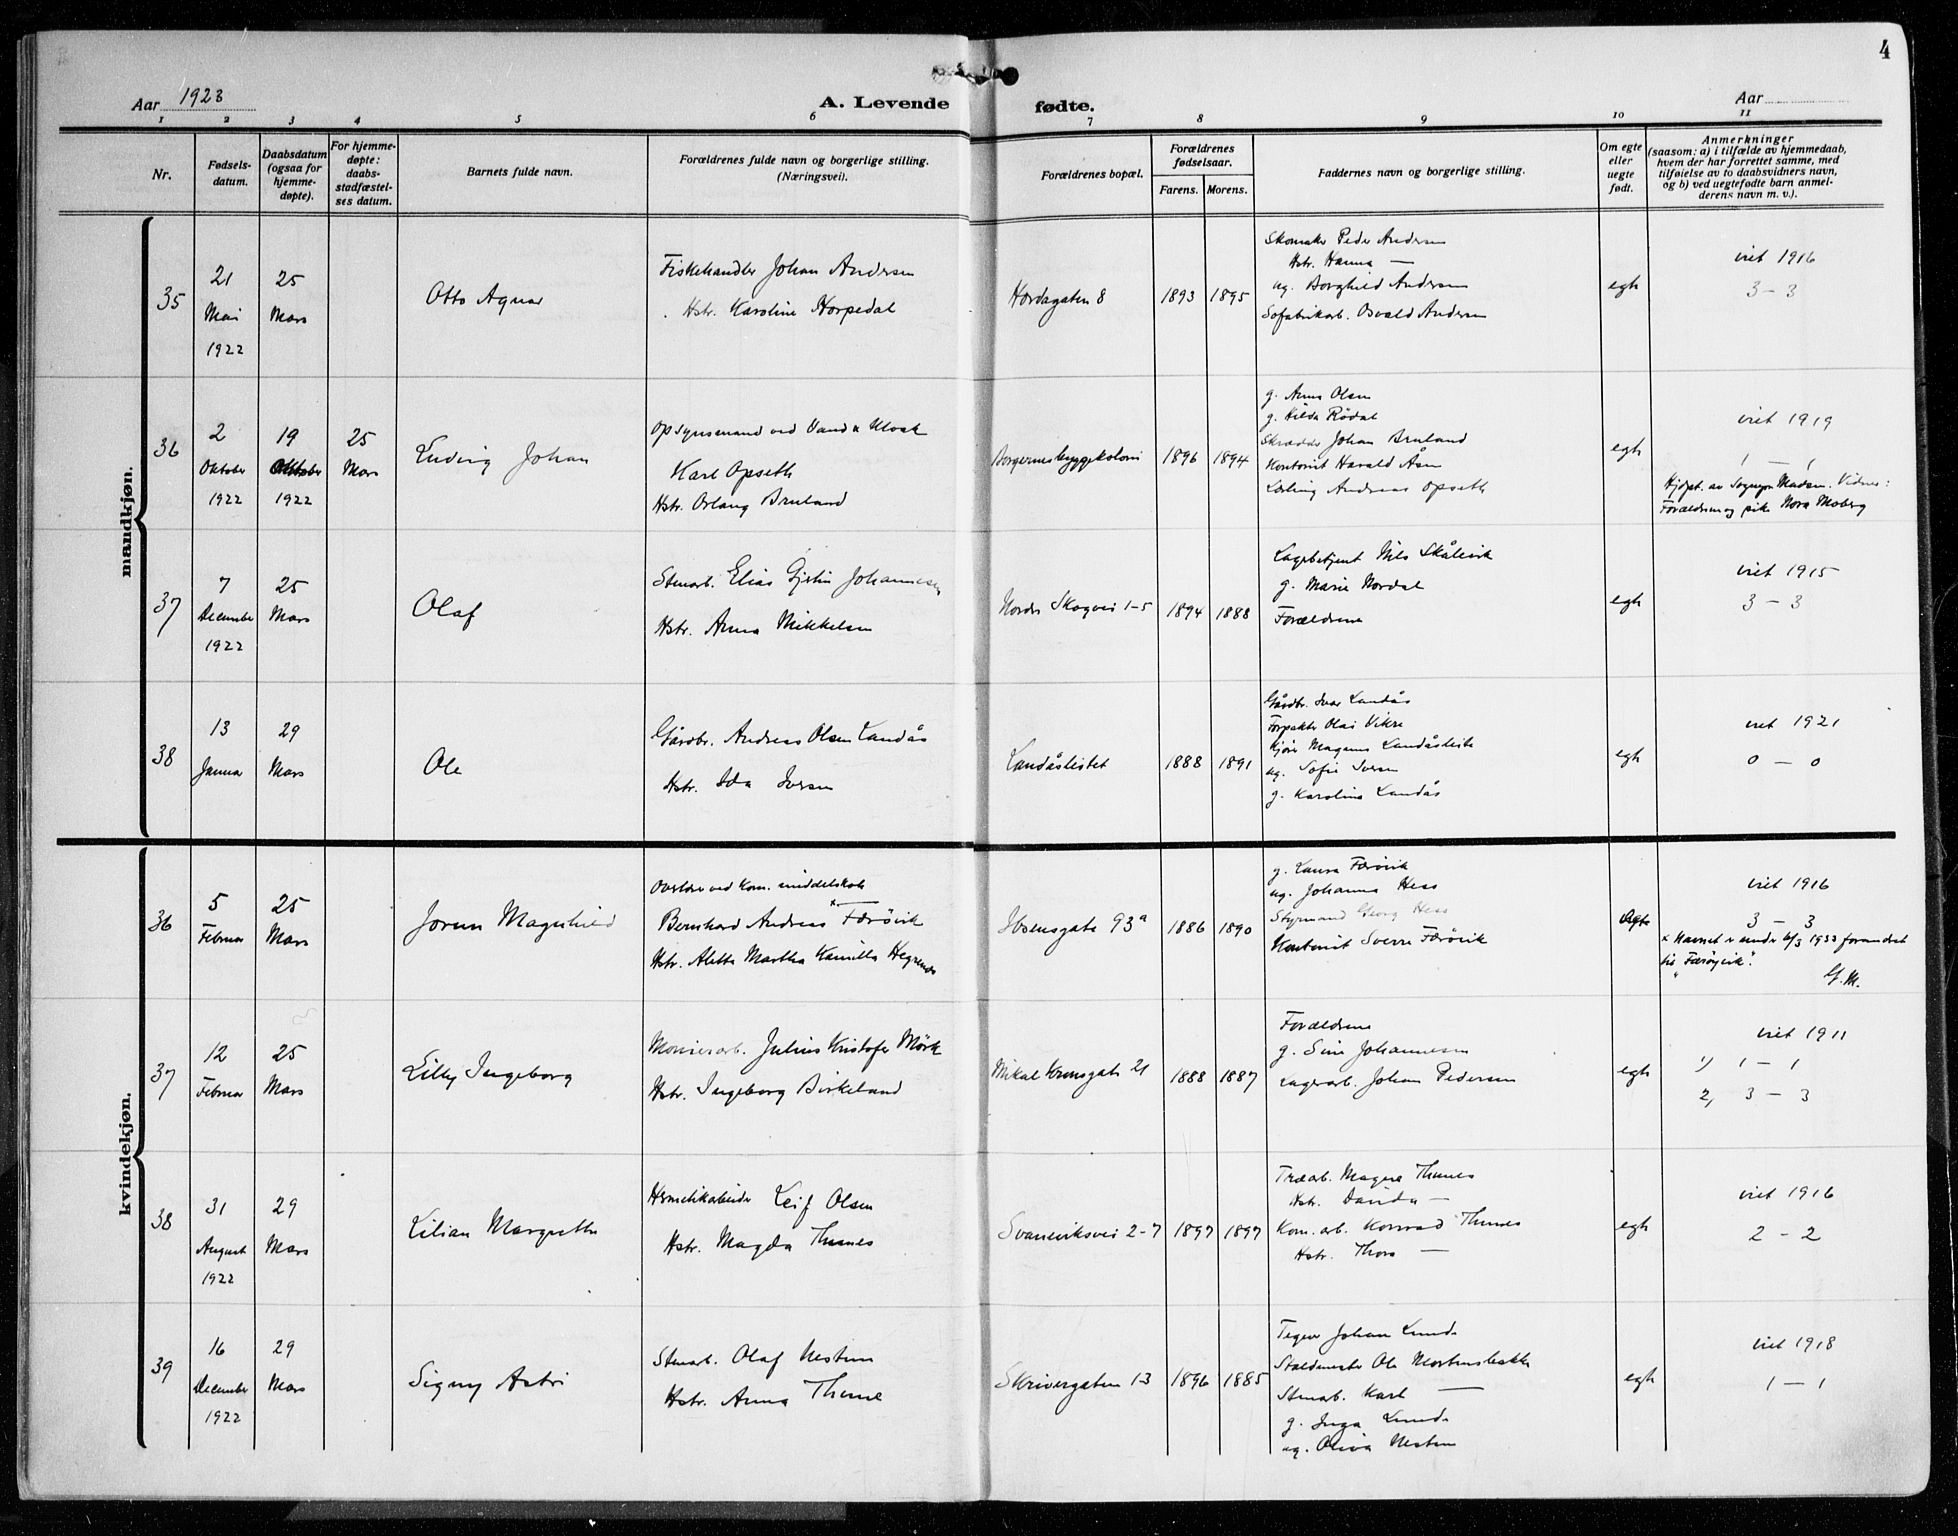 4
Aar 1923
A. Levende fødte.
Aar
1 2 3 4 5 6 7 8 9 10 11
Nr.
Fødsels-
datum.
Daabsdatum
(ogsaa for
hjemme-
døpte).
For hjemme-
døpte:
daabs-
stadfæstel-
ses datum.
Barnets fulde navn.
Forældrenes fulde navn og borgerlige stilling.
(Næringsvei).
Forældrenes bopæl.
Forældrenes
fødselsaar.
Farens. Morens.
Faddernes navn og borgerlige stilling.
Om egte
eller
uegte
født.
Anmerkninger
(saasom: a) i tilfælde av hjemmedaab,
hvem der har forrettet samme, med
tilføielse av to daabsvidners navn,
og b) ved uegtefødte barn anmel-
derens navn m. v.).
mandkjøn.
35
21
Mai
1922
25
Mars
Otto Agnar
Fiskehandler Johan Andersen
Hstr. Karoline Horpedal
Hordagaten 8
1893 1895
Skomaker Peder Andersen
Hstr. Hanna —
ug. Borghild Andersen
Sofabrikarb. Osvald Andersen
egte
viet 1916
3 – 3
36
2
Oktober
1922
19
Oktober
1922
25
Mars
Ludvig Johan
Opsynsmand ved Vand &
Karl Opseth
Hstr. Bruland
Borgernes byggekoloni
1896 1894
g. Anna Olsen
g. Hilda Rødal
Skrædder Johan Bruland
Kontorist Harald Åsen
Lærling Andreas Opseth
egte
viet 1919
1 – 1
Hjdpt. av Sognepr. Madsen. Vidner:
Forældrene og pike Nora Moberg
37
7
December
1922
25
Mars
Olaf
Stenarb. Elias Johannesen
Hstr. Anna Mikkelsen
Nordre Skogvei 1-5
1894 1888
Lagerbetjent Nils Skålevik
g. Marie Nordal
Forældrene
egte
viet 1915
3 – 3
38
13
Januar
29
Mars
Ole
Gårdbr. Andreas Olsen Landås
Hstr. Ida Iversen
Landåslistet
1888 1891
Gårdbr. Ivar Landås
Forpakter Olai Vikre
Kjører Magnus Landåsleite
ug. Sofie Iversen
g. Karoline Landås
egte
viet 1921
0 – 0
kvindekjøn.
36
5
Februar
25
Mars
Jorun Magnhild
Overlærer ved Kom. middelskole
Bernhard Andreas × Færövik
Hstr. Aletta Martha Kamilla Hegrenes
Ibsensgate 93a
1886 1890
g. Laura Færövik
ug. Johanna Hess
Styrmand Georg Hess
Kontorist Sverre Færövik
egte
viet 1916
3 – 3
× Navnet er under 6/3 1933 forandret
til "Færøyvik".
G. M.
37
12
Februar
25
Mars
Lilly Ingeborg
Monierarb. Julius Kristofer Mörk
Hstr. Ingeborg Birkeland
Mikal Kronsgate 21
1888 1887
Forældrene
g. Sine Johannesen
Lagerarb. Johan Pedersen
egte
viet 1911
1) 1 – 1
2, 3 – 3
38
31
August
1922
29
Mars
Lilian Margrethe
Hermetikarbeider Leif Olsen
Hstr. Magda Thunes
Svaneviksvei 2-7
1897 1897
Træarb. Magna Thunes
Hstr. Davida —
Kom. arb. Konrad Thunes
Hstr. Thora —
egte
viet 1916
2 – 2
39
16
December
1922
29
Mars
Signy Astri
Stenarb. Olaf Nestun
Hstr. Anna Thune
Skrivergaten 13
1896 1885
Tegner Johan Lunde
Staldmester Ole Mortensbakke
Stenarb. Karl —
g. Inga Lunde
ug. Oliva Nestun
egte
viet 1918
1 – 1